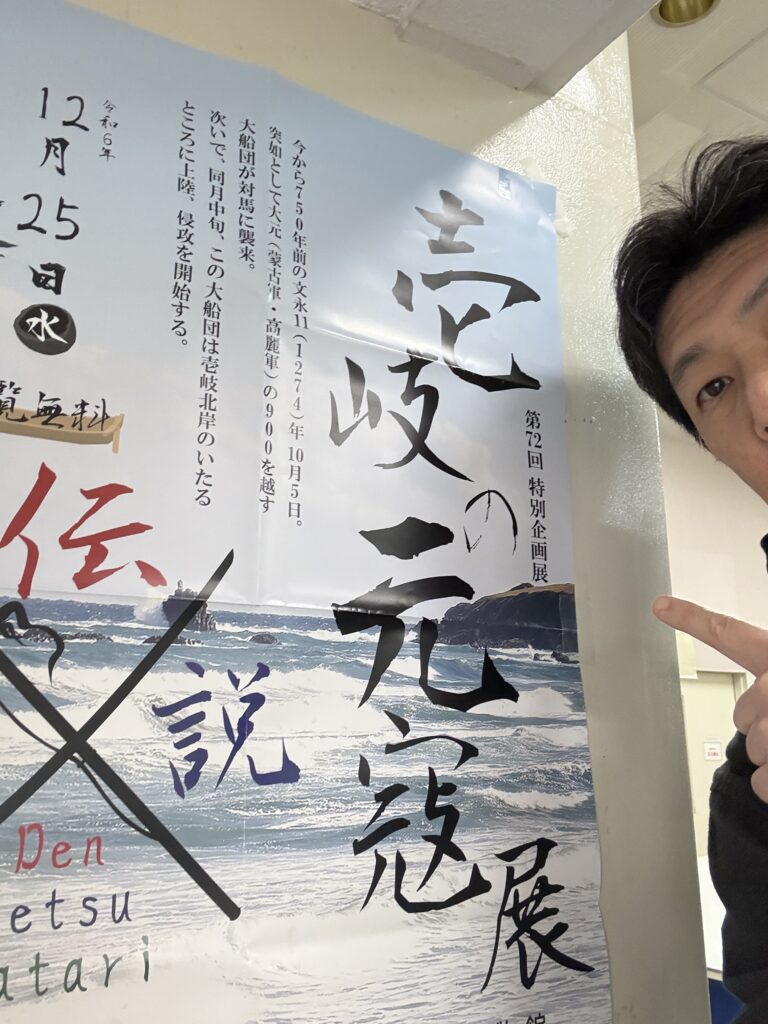 第72回 特別企画展
壱岐の元寇展
今から750年前の文永11(1274)年10月5日。
突如として大元(蒙古軍・高麗軍)の900を越す
大船団が対馬に襲来。
次いで、同月中旬、この大船団は壱岐北岸のいたる
ところに上陸、侵攻を開始する。
令和6年
12月25日
水
覧無料
伝
説
Den
etsu
atari
館